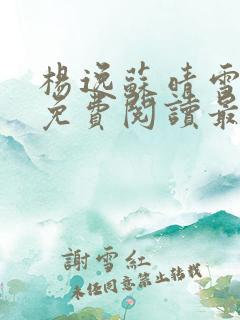 楊逸蘇晴雪
免費閱讀最
謝雪紅
未经同意禁止转载